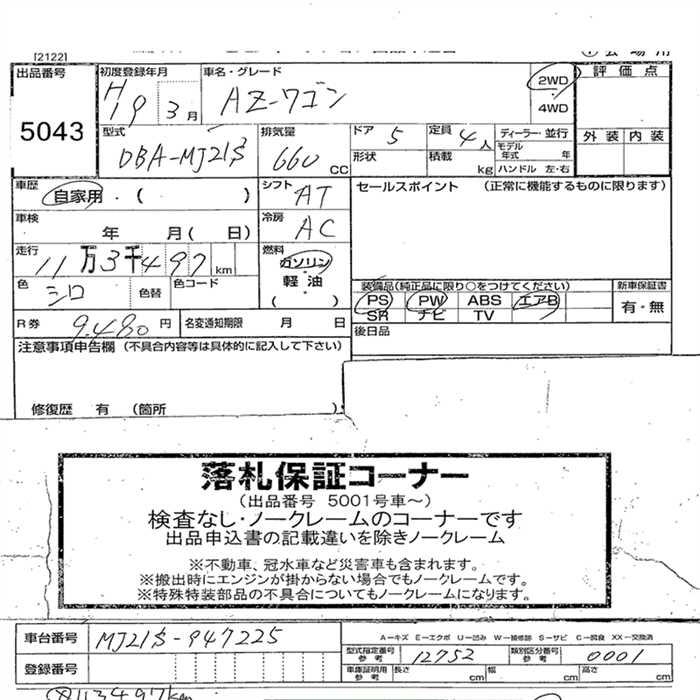 [2122]
出品番号 初度登録年月 車名・グレード 2WD 評価点
5043 H19 3月 AZ-ワゴン 4WD
型式 排気量 ドア 5 定員 4人 ディーラー・並行 外装 内装
DBA-MJ21S 660 CC 形状 積載 kg モデル年式 年
ハンドル 左・右
車歴 自家用・( ) シフト AT セールスポイント (正常に機能するものに限ります)
車検 年 月(日) 冷房 AC
走行 11万3千497km 燃料 ガソリン・
軽油
( )
色 シロ 色替 色コード
装備品(純正品に限り○をつけてください) 新車保証書
PS PW ABS エアB 有・無
SR ナビ TV
R券 9.480円 名変通知期限 月 日 後日品
注意事項申告欄 (不具合内容等は具体的に記入して下さい)
修復歴 有 (箇所 )
落札保証コーナー
(出品番号 5001号車〜)
検査なし・ノークレームのコーナーです
出品申込書の記載違いを除きノークレーム
※不動車、冠水車など災害車も含まれます。
※搬出時にエンジンが掛からない場合でもノークレームです。
※特殊特装部品の不具合についてもノークレームになります。
A-キズ E-エクボ U-凹み W-補修跡 S-サビ C-腐食 XX-交換済
車台番号 MJ21S-947225 型式指定番号 参考 12752 類別区分番号 参考 0001
登録番号 車庫証明用 参考 長さ cm 幅 cm 高さ cm
113497km